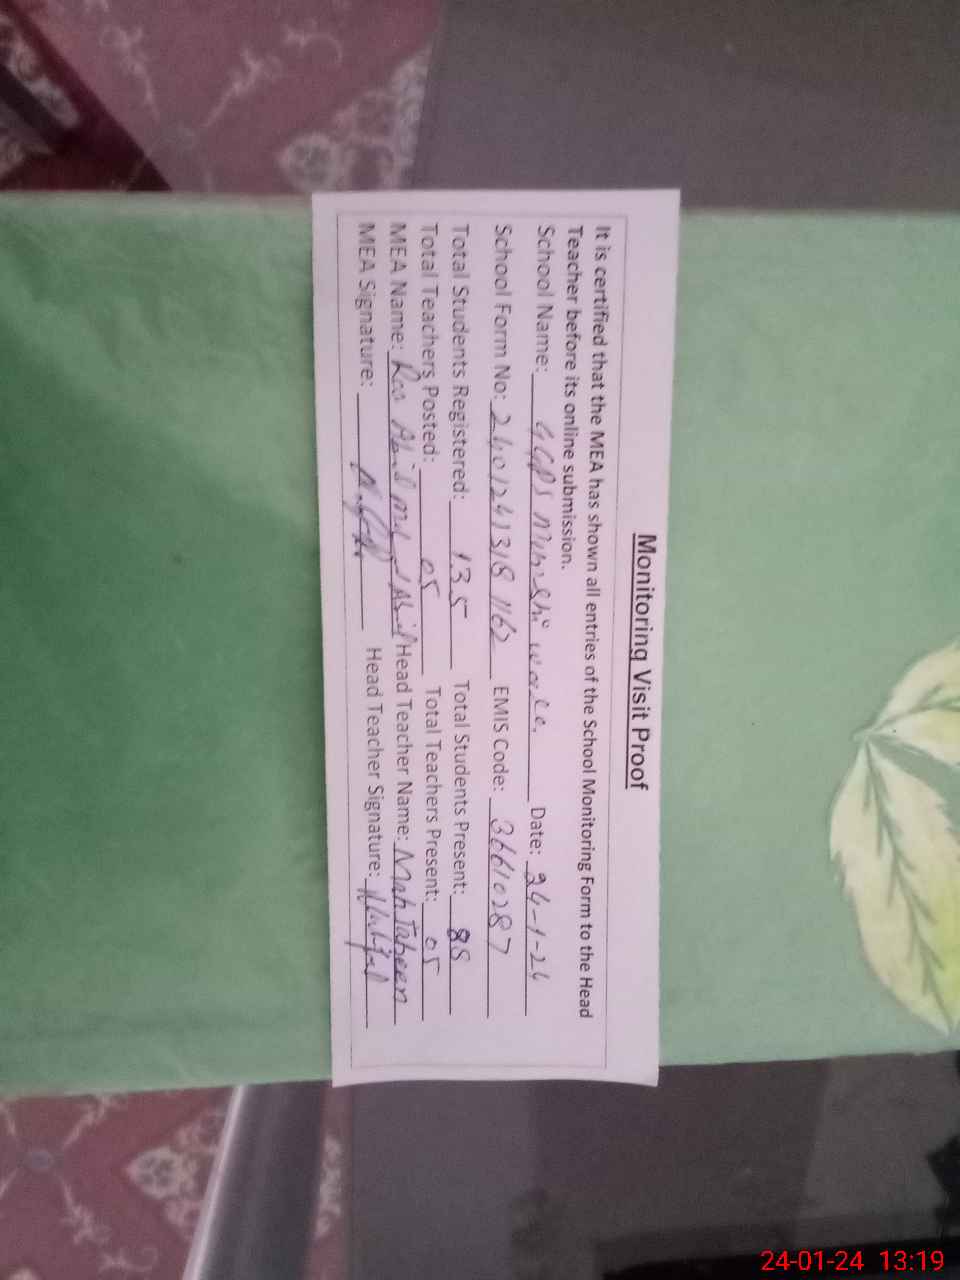 Monitoring Visit Proof
It is certified that the MEA has shown all entries of the School Monitoring Form to the Head
Teacher before its online submission.
School Name: GGPS wala. Date: 24-1-24
School Form No: EMIS Code: 36610287
Total Students Registered: 135 Total Students Present: 88
Total Teachers Posted: 05 Total Teachers Present: 05
MEA Name: Rao Abid Head Teacher Name: Mah Jabeen
MEA Signature: Head Teacher Signature:
24-01-24 13:19